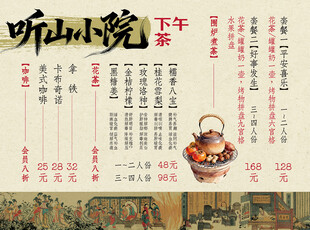 听山小院
下午茶
【围炉煮茶】
套餐一【平安喜乐】 一-二人份 128元
花茶/罐罐奶一壶，烤物拼盘六宫格
套餐二【好事发生】 三-四人份 168元
花茶/罐罐奶一壶，烤物拼盘九宫格
水果拼盘
【花茶】 会员八折
【糯香八宝】
【桂花雪梨】
【玫瑰洛神】
【金桔柠檬】
【黑糖姜】
一-二人份 48元
三-四人份 98元
【咖啡】 会员八折
拿铁 32元
卡布奇诺 28元
美式咖啡 25元